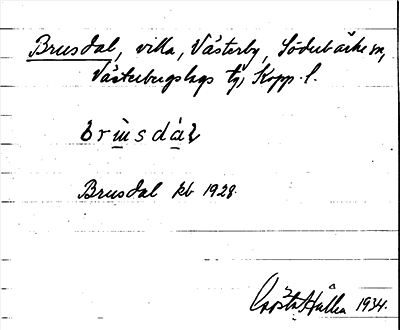 Brusdal, villa, Västerby, Söderbärke sn,
Västerbergslags tg, Kopp. l.
brùsdàl
Brusdal kb 1928.
Gösta Hulla 1934.